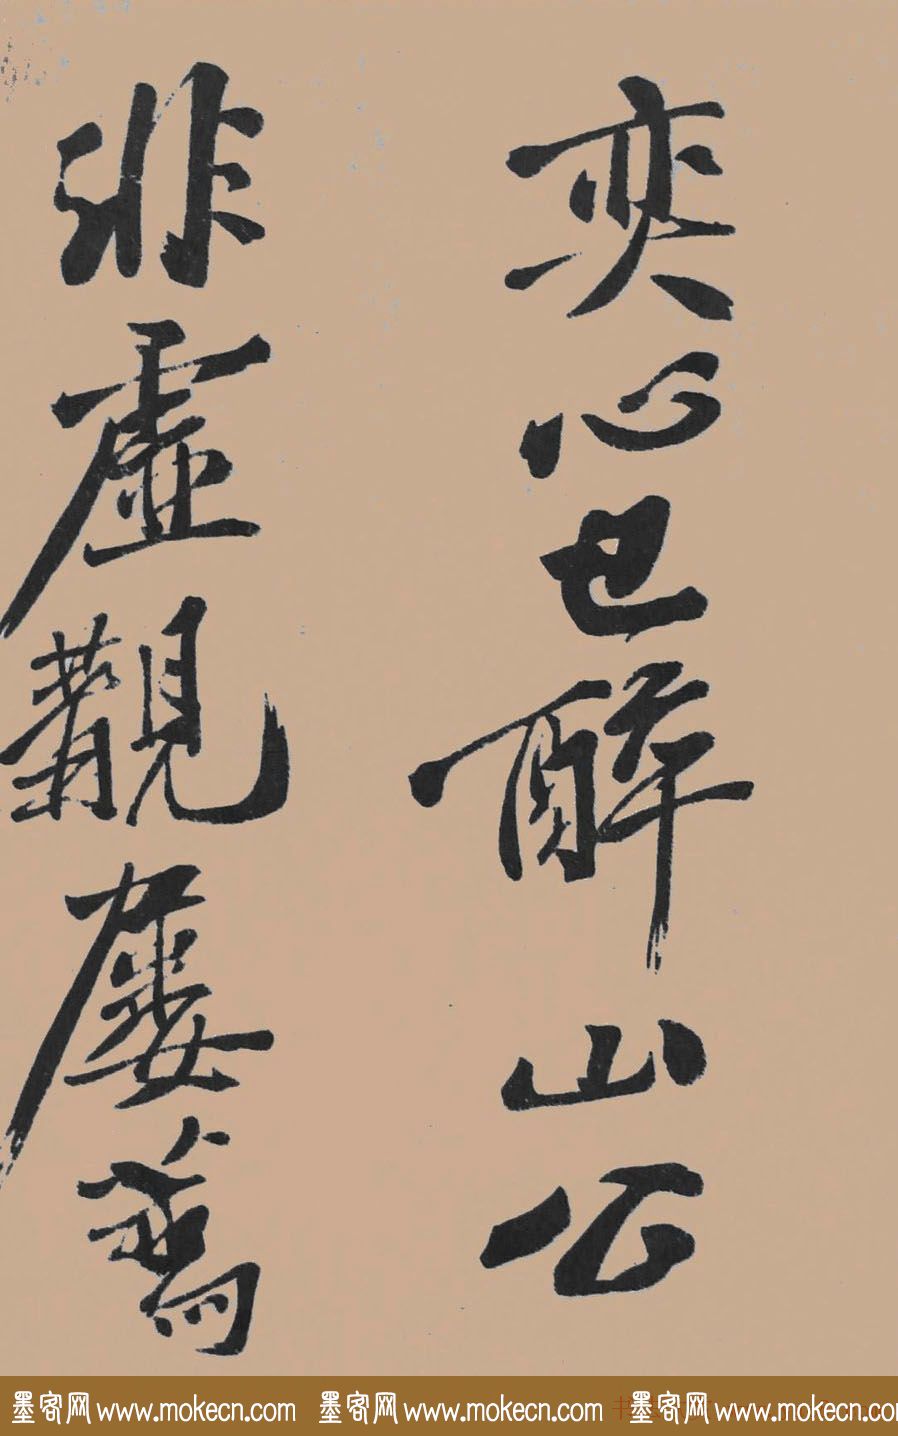 奕心已醉山公
非虛觀屢
墨客网 www.mokecn.com 墨客网 www.mokecn.com 墨客网 www.mokecn.com